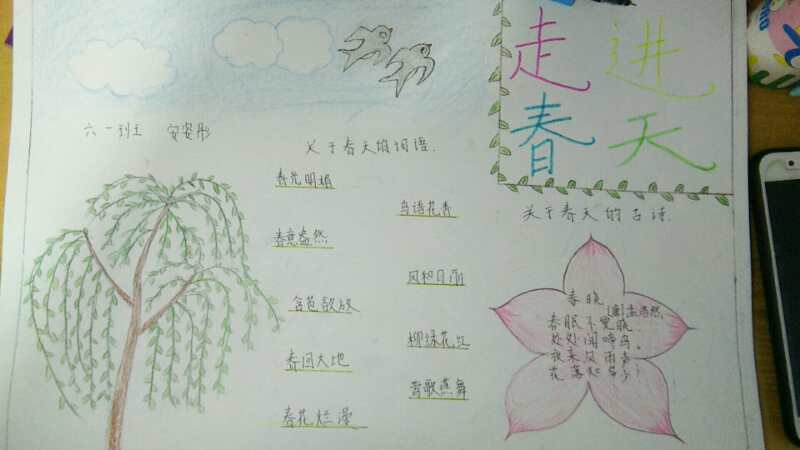 走进
春天
六一班 安姿彤
关于春天的词语.
春光明媚
鸟语花香
春意盎然
风和日丽
含苞欲放
柳绿花红
春回大地
莺歌燕舞
春花烂漫
关于春天的古诗.
春晓
[唐]孟浩然.
春眠不觉晓
处处闻啼鸟。
夜来风雨声
花落知多少?